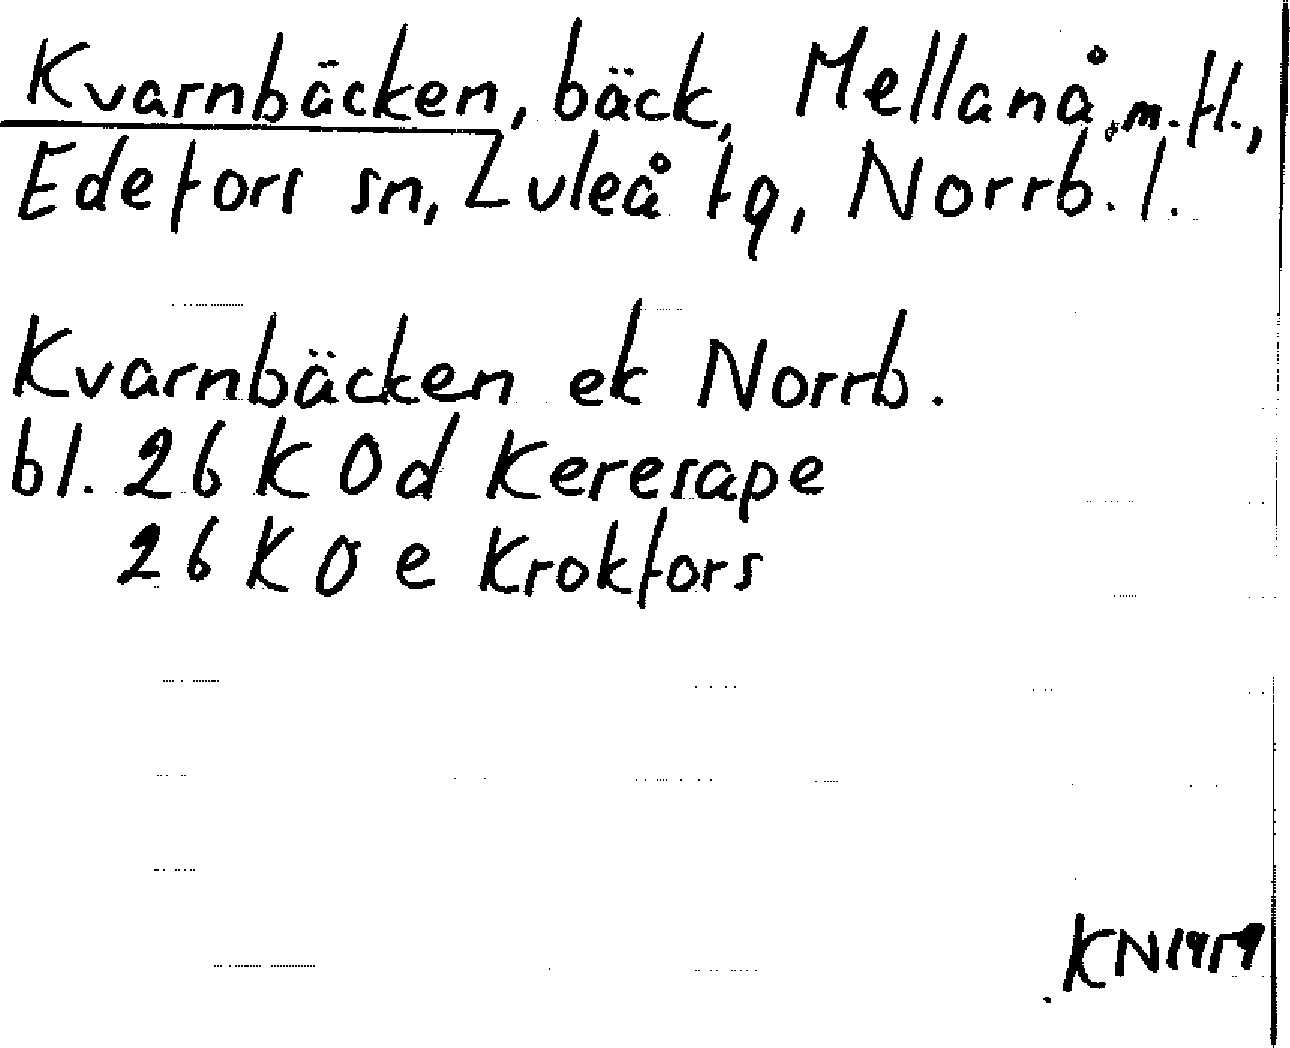 Kvarnbäcken, bäck, Mellanå m.fl.,
Edefors sn, Luleå tg, Norrb. l.
Kvarnbäcken ek Norrb.
bl. 26 K 0d Keresape
26 K 0 e Krokfors
KN 1959